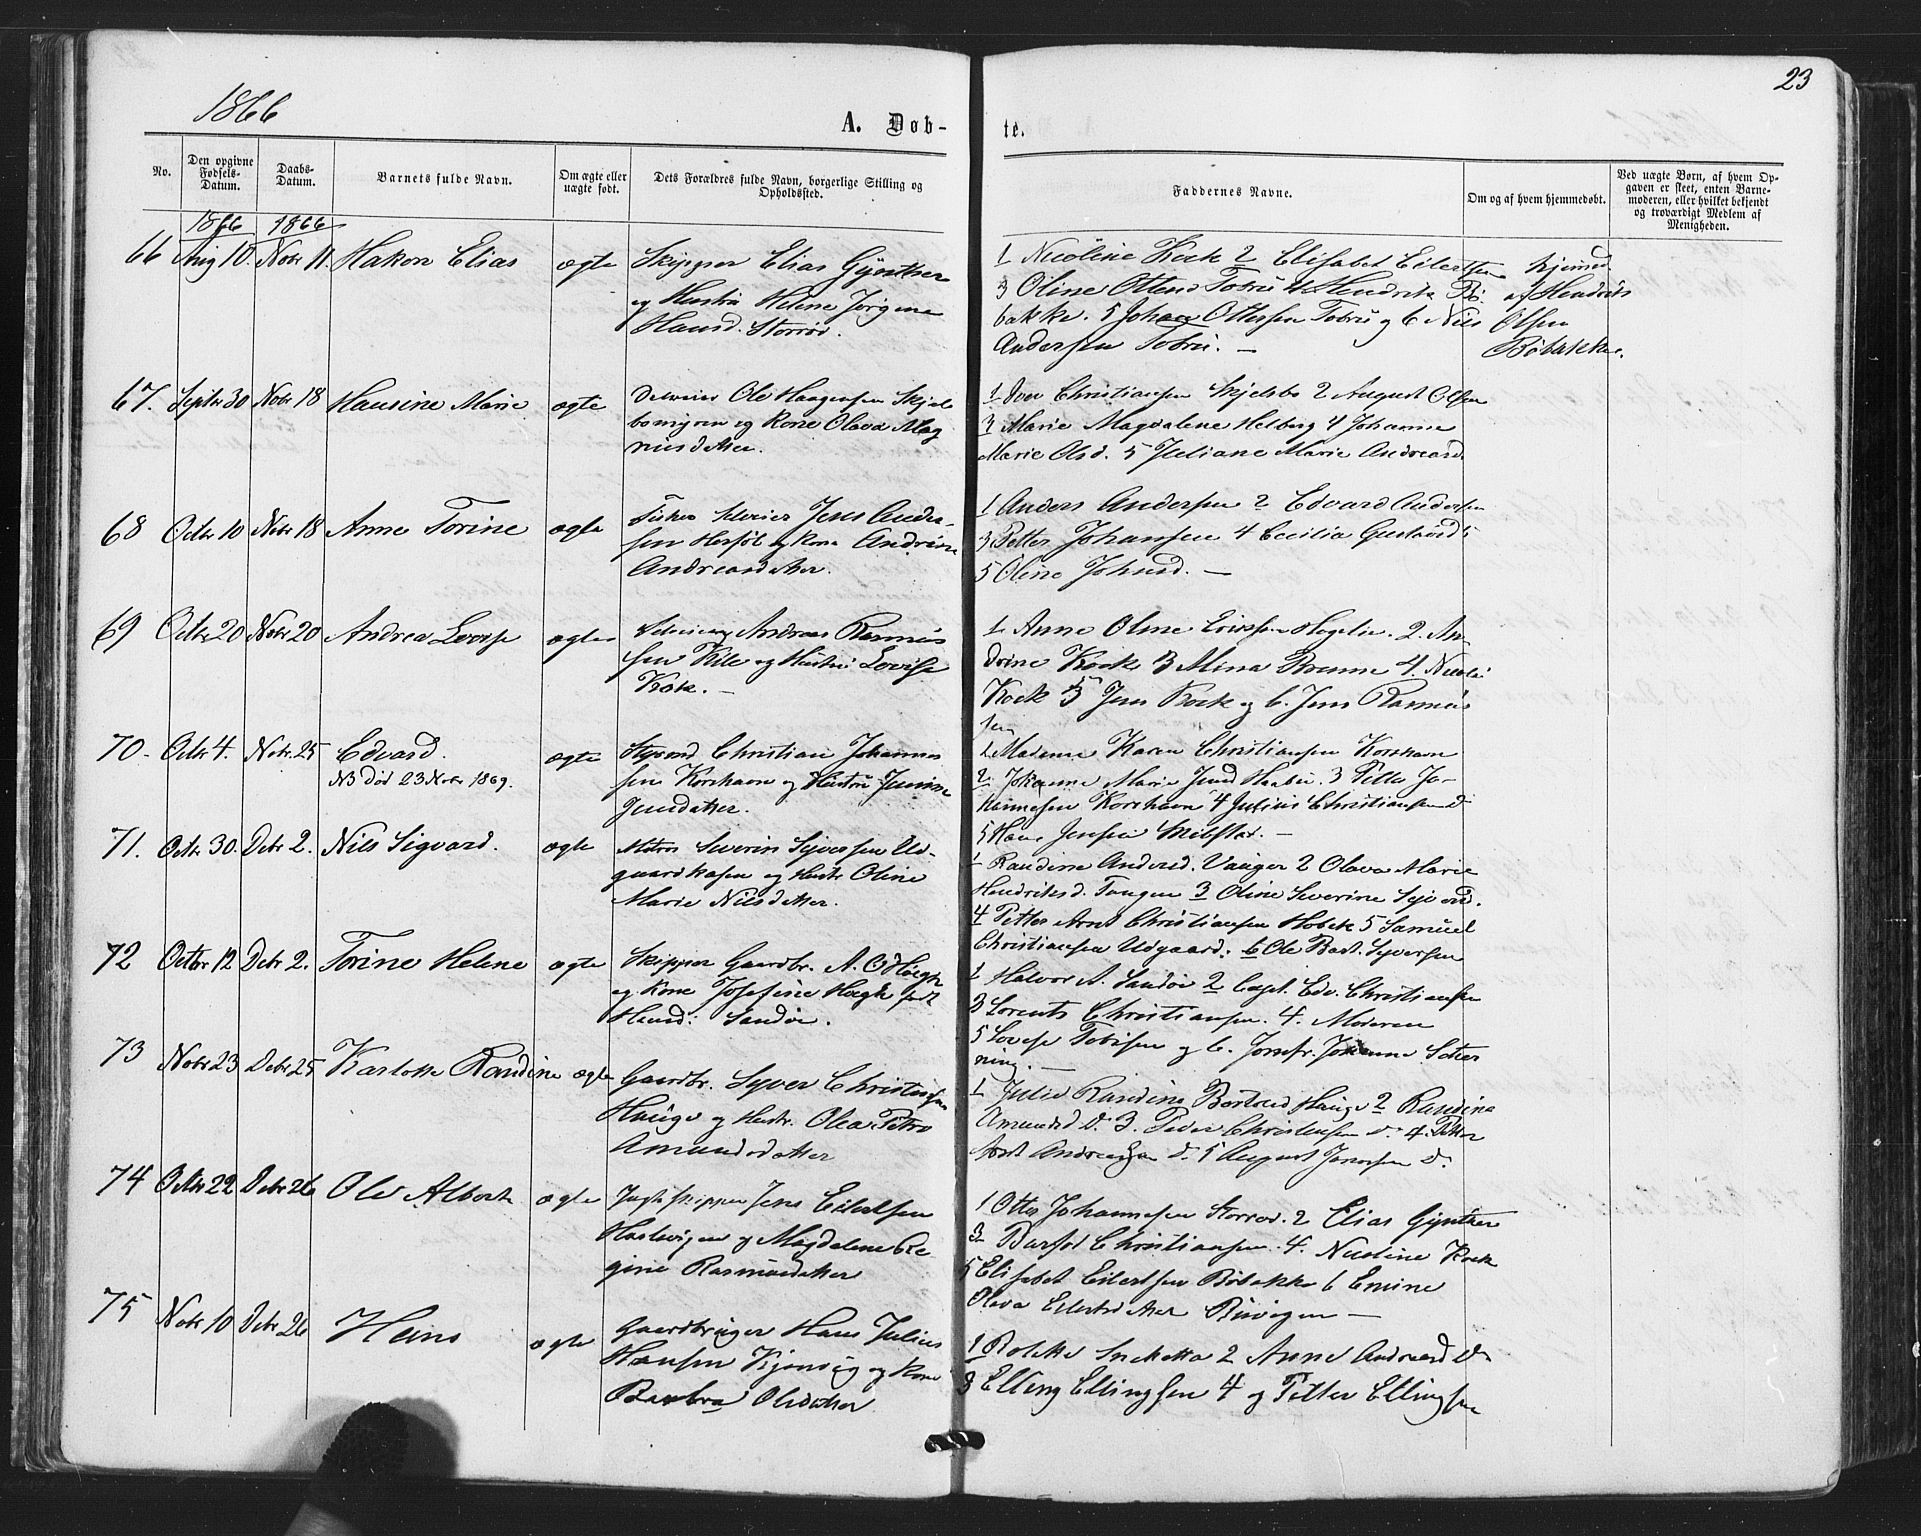 1866
23
A. Døb-
te.
No.
Den opgivne Fødsels-Datum.
Daabs-Datum.
Barnets fulde Navn.
Om ægte eller uægte født.
Dets Forældres fulde Navn, borgerlige Stilling og Opholdssted.
Faddernes Navne.
Om og af hvem hjemmedøbt.
Ved uægte Børn, af hvem Opgaven er skeet, enten Barnemoderen, eller hvilket bekjendt og troværdigt Medlem af Menigheden.
1866 1866
66 Aug 10. Nobr 11. Hakon Elias ægte
Skipper Elias Gynther
og Hustru Helene Jørgine
Hansd. Storrød.
1 Nicoline Kock 2 Elisabet Eilertsen
3 Oline Ottersd Tobru 4 Hendrik Bø-
bakke. 5 Johan Ottersen Tobru og 6 Nils
Andersen Tobru. —
hjemmed
af Hendrik
Olsen
Bøbakke.
67. Septbr 30 Nobr 18 Hansine Marie ægte
Ole Haagensen Skjel
bomyren og Kone Olava Mag
nusdatter.
1 Iver Christiansen Skjelsbo 2 August Olsen
3 Marie Magdalene Helberg 4 Johanne
Marie Olsd. 5 Juliane Marie Andreasd.
68 Octbr 10 Nobr 18 Anne Torine ægte
Fisker Selveier Jens Ander-
sen Herføl og Kone Andrine
Andreasdatter.
1 Anders Andersen 2 Edvard Andersen
3 Petter Johansen 4 Cecilia Gustavsd
5 Oline Johnsd. —
69 Octbr 20 Nobr 20 Andrea Lovise ægte
Selveier Andreas Rasmus
sen Kile og Hustru Lovise
Kock. —
1 Anne Oline Eriksen 2. An-
drine Kock 3 Mina Brunne 4. Nicolai
Kock 5 Jens Kock og 6. Jens Rasmus
sen
70. Octbr 4. Nobr. 25 Edvard. ægte
NB Død 23 Nobr 1869.
Styrmd Christian Johannes
sen Korshavn og Hustru Junine
Jensdatter.
1 Madame Karen Christiansen Korshavn
2 Johanne Marie Jensd 3 Petter Jo-
hannesen Korshavn 4 Julius Christiansen d
5 Hans Jensen —
71. Octbr 30. Debr 2. Nils Sigvard. ægte
Matros Severin Syversen Ud-
gaardkasen og Hustr Oline
Marie Nilsdatter.
1 Randine Andersd. Vauger 2 Olava Marie
Hendriksd. Tangen 3 Oline Severine Syversd.
4 Petter Arnt Christiansen 5 Samuel
Christiansen Udgaard. 6 Ole Bast. Syversen
72 Octbr 12 Debr 2. Torine Helene ægte
Skipper Gaardbr. A. O Høegh
og Kone Josefine Høegh født
Hansd: Sandø.
1 Halvor A. Sandøe 2 Capt. Edv. Christiansen
3 Lorents Christiansen. 4. Moderen
5 Lovise Tobisen og 6. Jomfr. Johanne
ning. —
73 Nobr 23 Debr 25 Karlotte Randine ægte
Gaardbr. Syver Christensen
Hauge og Hustr. Olea Petra
Amundsdatter
1 Julie Randine Hauge 2 Randine
Amundsd d. 3. Peder Christensen d. 4. Petter
Arnt Andreassen d. 5 August d.
74 Octbr 22 Debr 26 Ole Albert ægte
Jagtskipper Jens Eilertsen
og Magdalene Re
gine Rasmusdatter
1 Otter Johannesen Storrød. 2 Elias Gynther
3 Christiansen. 4. Nicoline Kock
5 Elisabet Eilertsen Bøbakke 6 Emine
Olava Eilertsdatter —
75 Nobr 10 Debr 26 Heins ægte
Gaardbruger Hans Julius
Hansen og Kone
Barbra Olsdatter
1 2 Anne Andreasd d.
3 Elling Ellingsen 4 og Petter Ellingsen